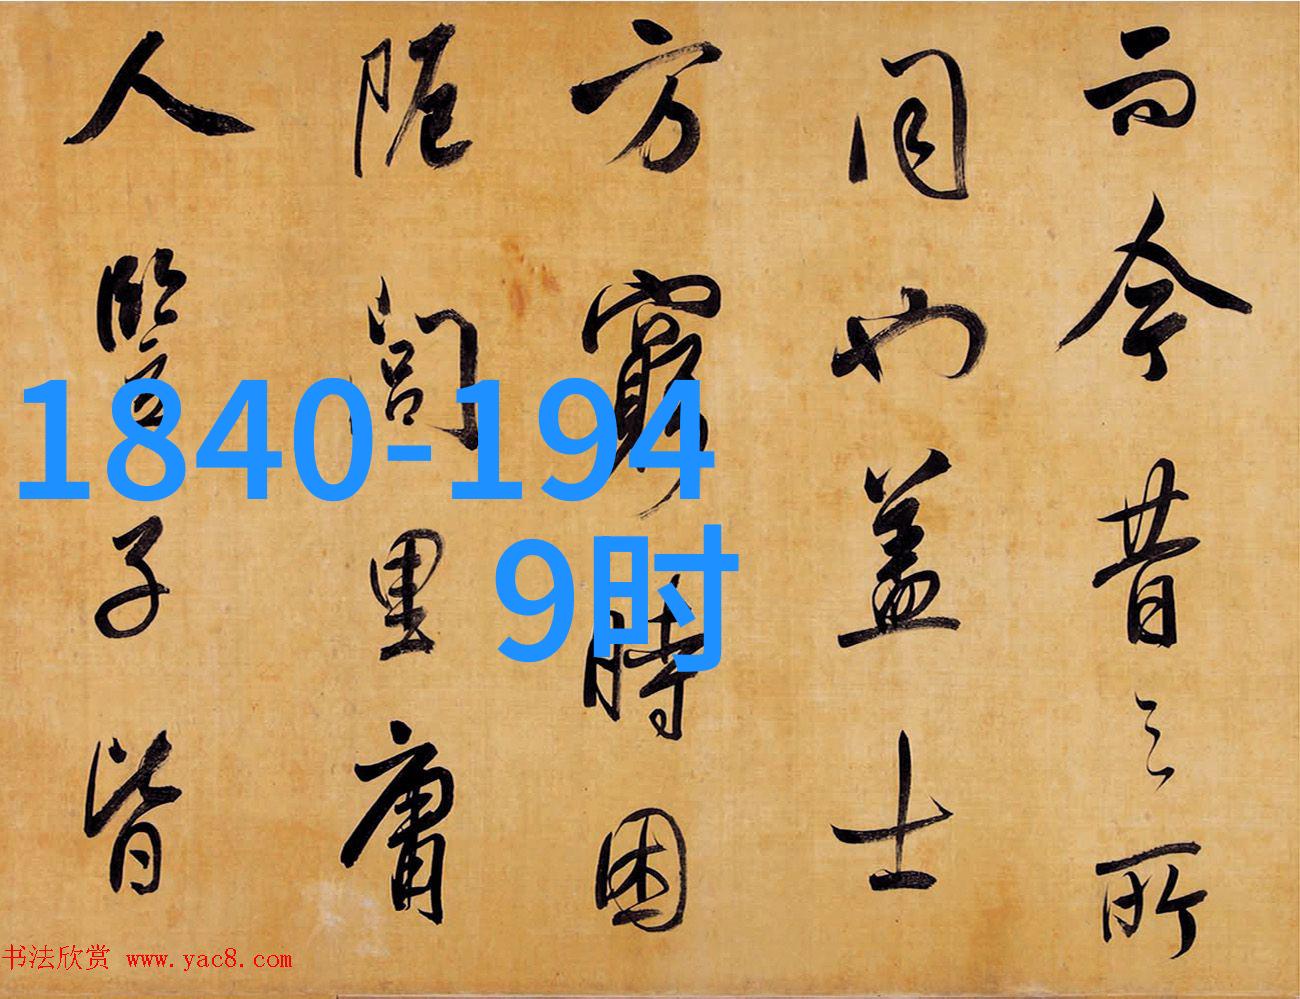 而今昔之所
同也盖士
方窮時困
阨閭里庸
人孺子皆
1840-194
9时
书法欣赏 www.yac8.com